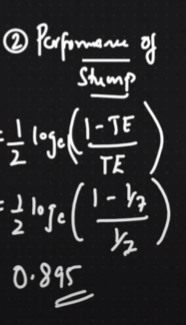 ② Performance of
Stump
= 1/2 loge(1-TE/TE)
= 1/2 loge(1-1/7/1/7)
0.895